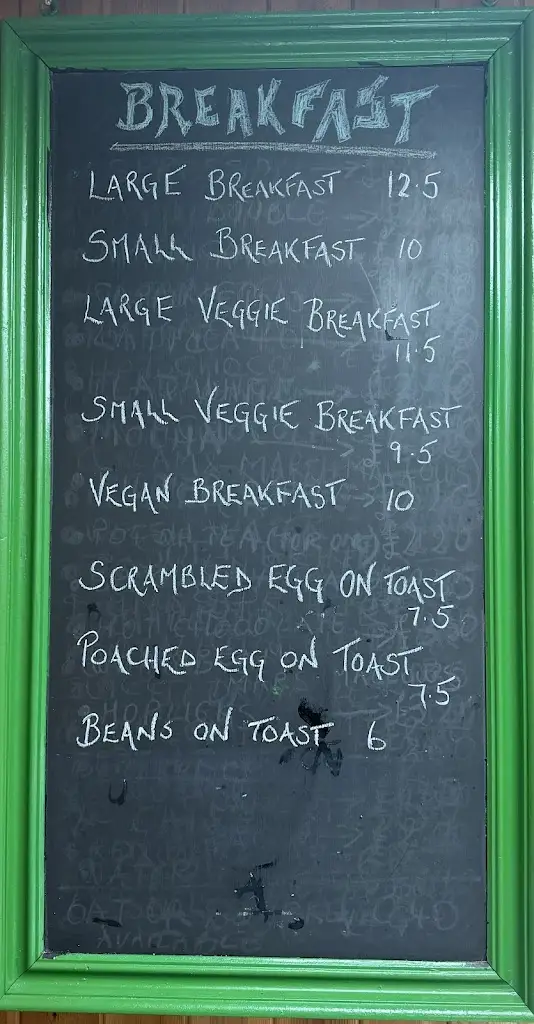 BREAKFAST
LARGE BREAKFAST 12.5
SMALL BREAKFAST 10
LARGE VEGGIE BREAKFAST
11.5
SMALL VEGGIE BREAKFAST
9.5
VEGAN BREAKFAST 10
SCRAMBLED EGG ON TOAST
7.5
POACHED EGG ON TOAST
7.5
BEANS ON TOAST 6